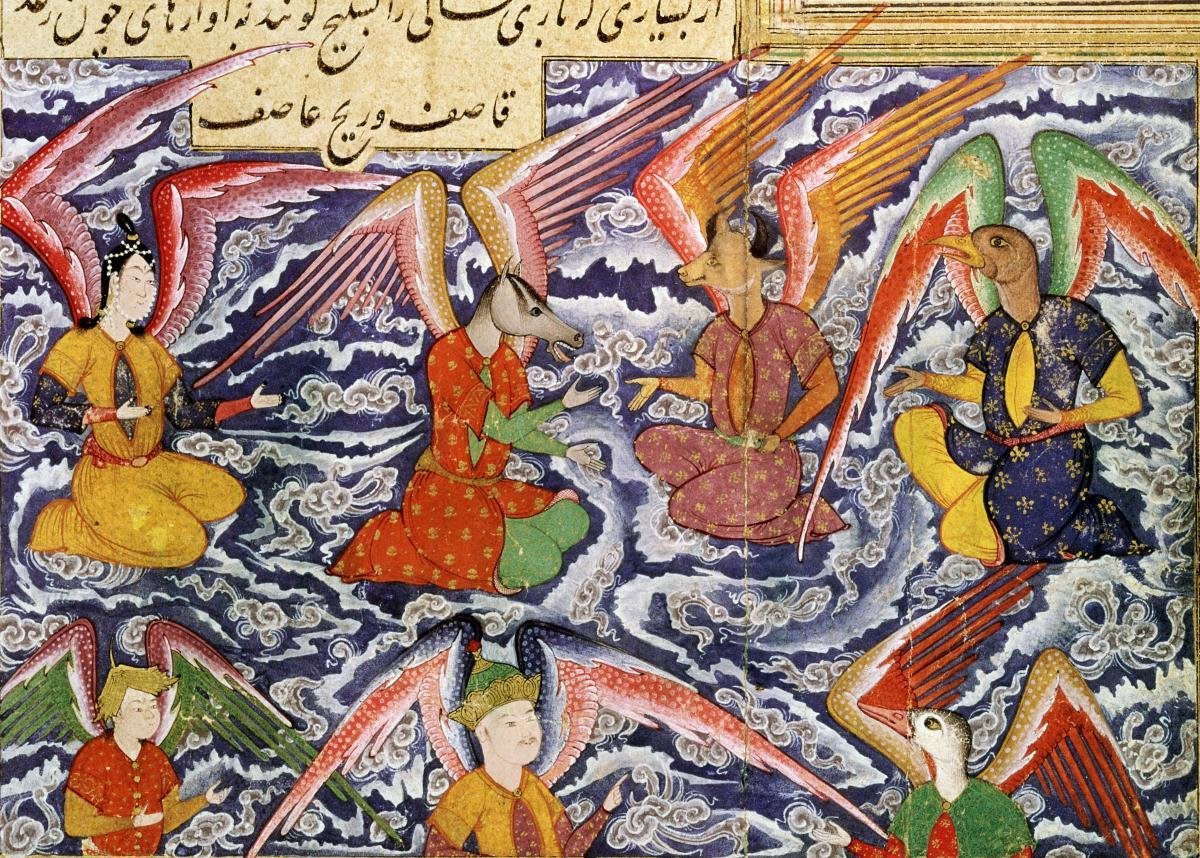 از بسیاری که باری تعالی را تسبیح گویند به آوازهای چون رعد
قاصف و ریح عاصف